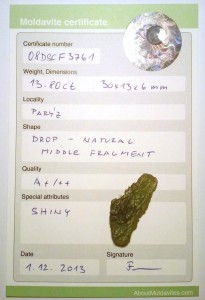 Moldavite certificate
Certificate number
08DSCF3761
Weight, Dimensions
13.80ct 30x13x6mm
Locality
Shape
DROP - NATURAL
MIDDLE FRAGMENT
Quality
A+/++
Special attributes
SHINY
Date
Signature
1.12.2013
AboutMoldavites.com